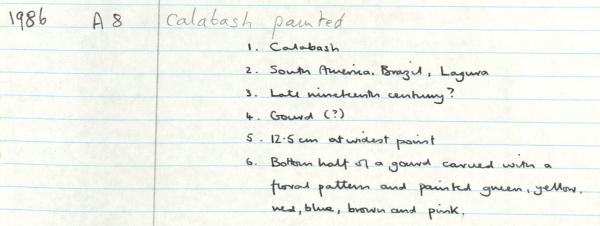 1986 A 8 Calabash painted
1. Calabash
2. South America, Brazil, Laguna
3. Late nineteenth century?
4. Gourd (?)
5. 12.5 cm at widest point
6. Bottom half of a gourd carved with a
floral pattern and painted green, yellow,
red, blue, brown and pink.